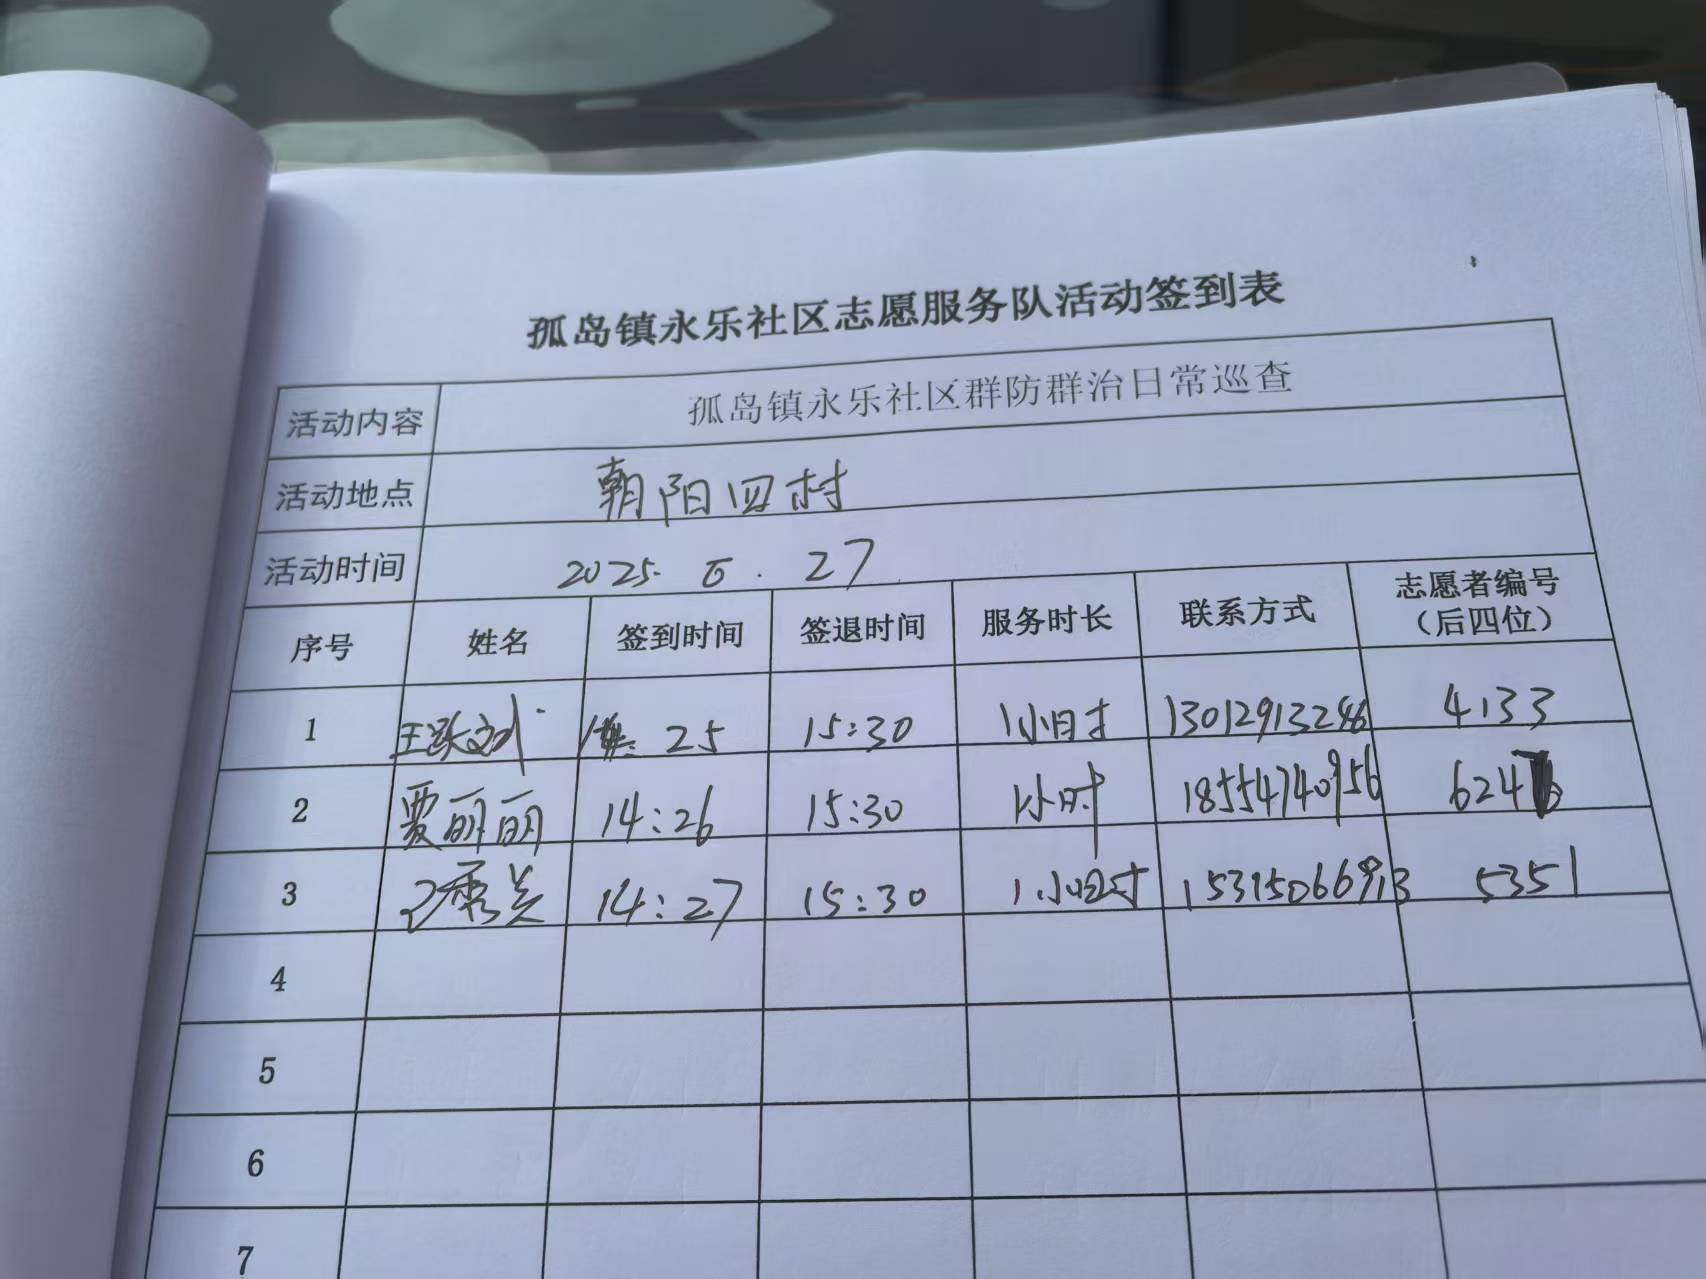 孤岛镇永乐社区志愿服务队活动签到表
活动内容 孤岛镇永乐社区群防群治日常巡查
活动地点 朝阳四村
活动时间 2025. 6. 27
序号 姓名 签到时间 签退时间 服务时长 联系方式 志愿者编号（后四位）
1 25 15:30 1小时 13012913246 4133
2 贾丽丽 14:26 15:30 1小时 18554740956 624
3 14:27 15:30 1小时 15315066913 5351
4
5
6
7